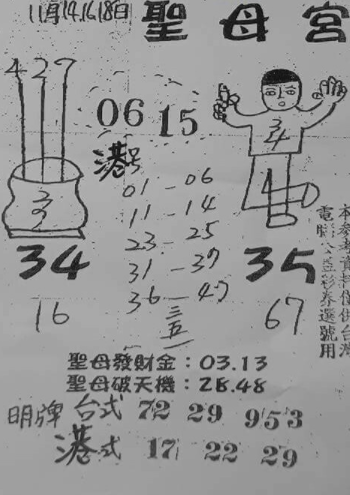 11月14.16.18日
聖母宮
4 2 7
06 15
港号
01-06
11-14
23-25
31-37
36-47
三五
34
34
35
16
67
本參考資料僅供台灣
電腦公益彩券選號用
聖母發財金：03.13
聖母破天機：28.48
明牌 台式 72 29 953
港式 17 22 29